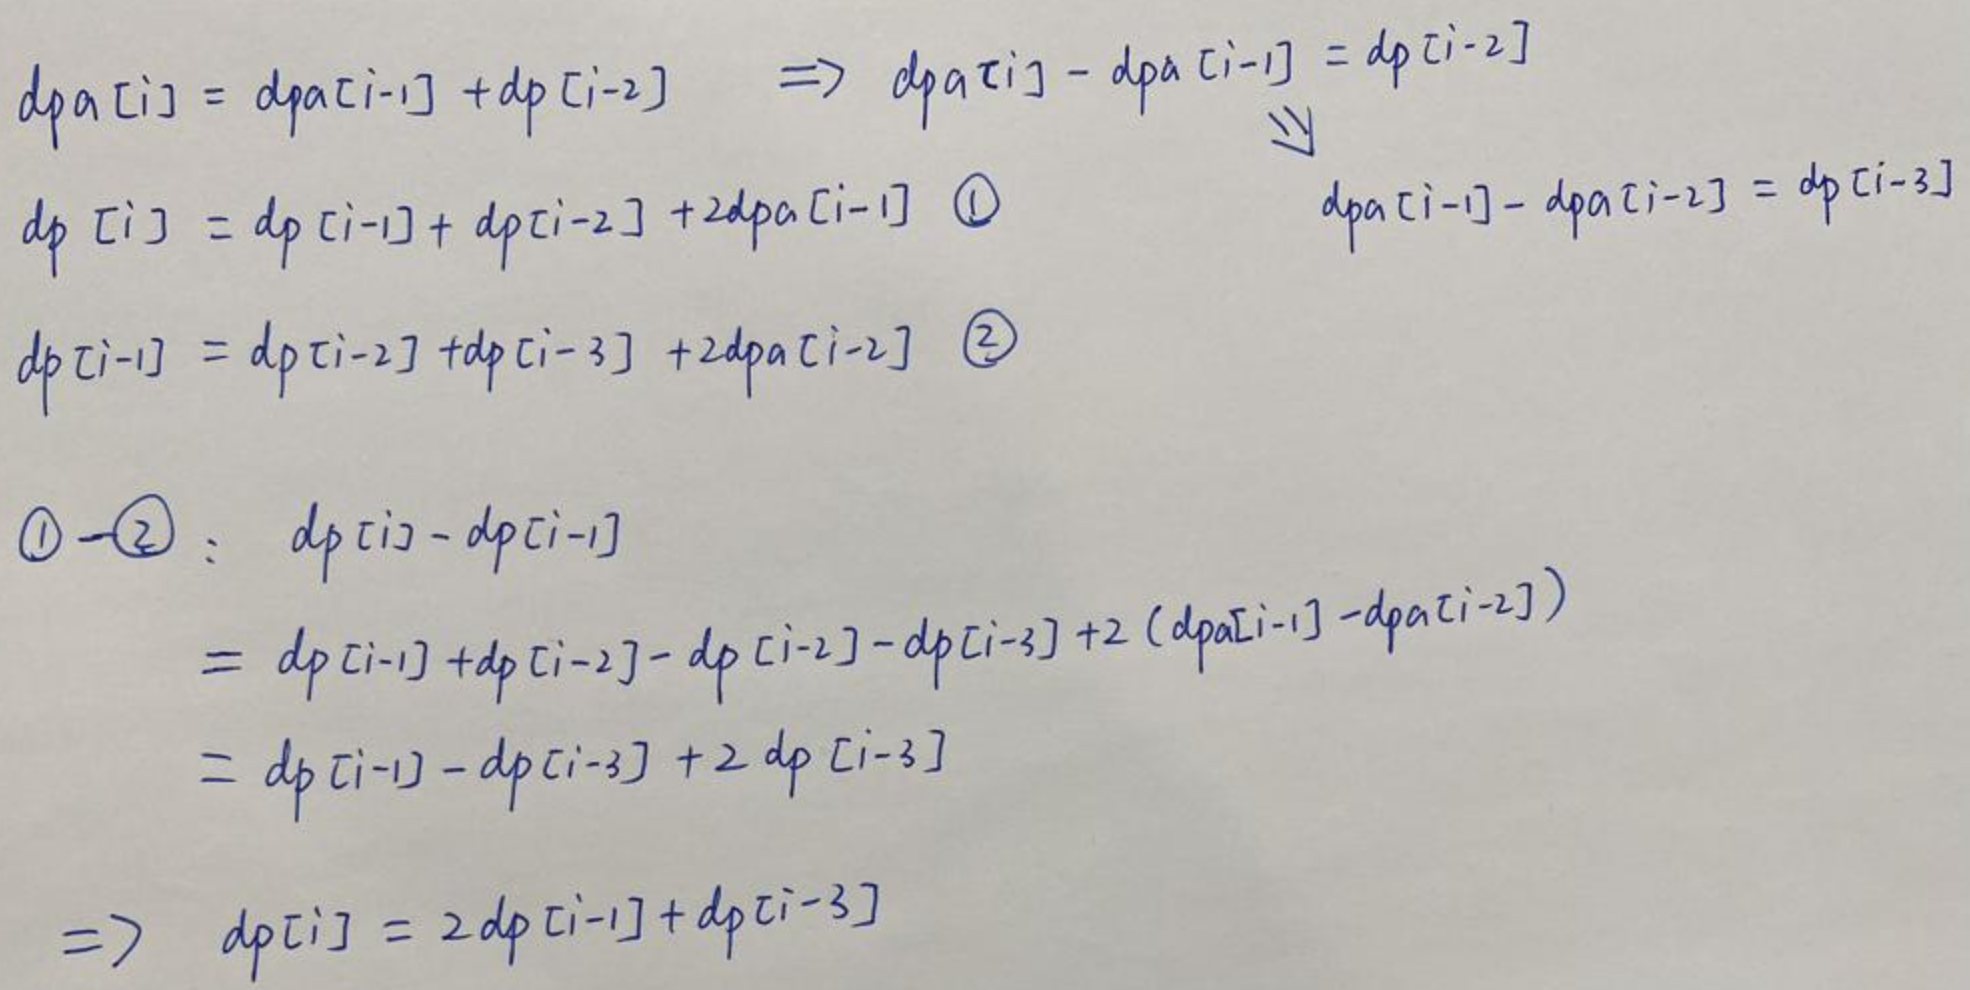 dpa[i] = dpa[i-1] + dp[i-2] => dpa[i] - dpa[i-1] = dp[i-2]
⇓
dpa[i-1] - dpa[i-2] = dp[i-3]
dp[i] = dp[i-1] + dp[i-2] + 2dpa[i-1] ①
dp[i-1] = dp[i-2] + dp[i-3] + 2dpa[i-2] ②
① - ② : dp[i] - dp[i-1]
= dp[i-1] + dp[i-2] - dp[i-2] - dp[i-3] + 2(dpa[i-1] - dpa[i-2])
= dp[i-1] - dp[i-3] + 2 dp[i-3]
=> dp[i] = 2dp[i-1] + dp[i-3]